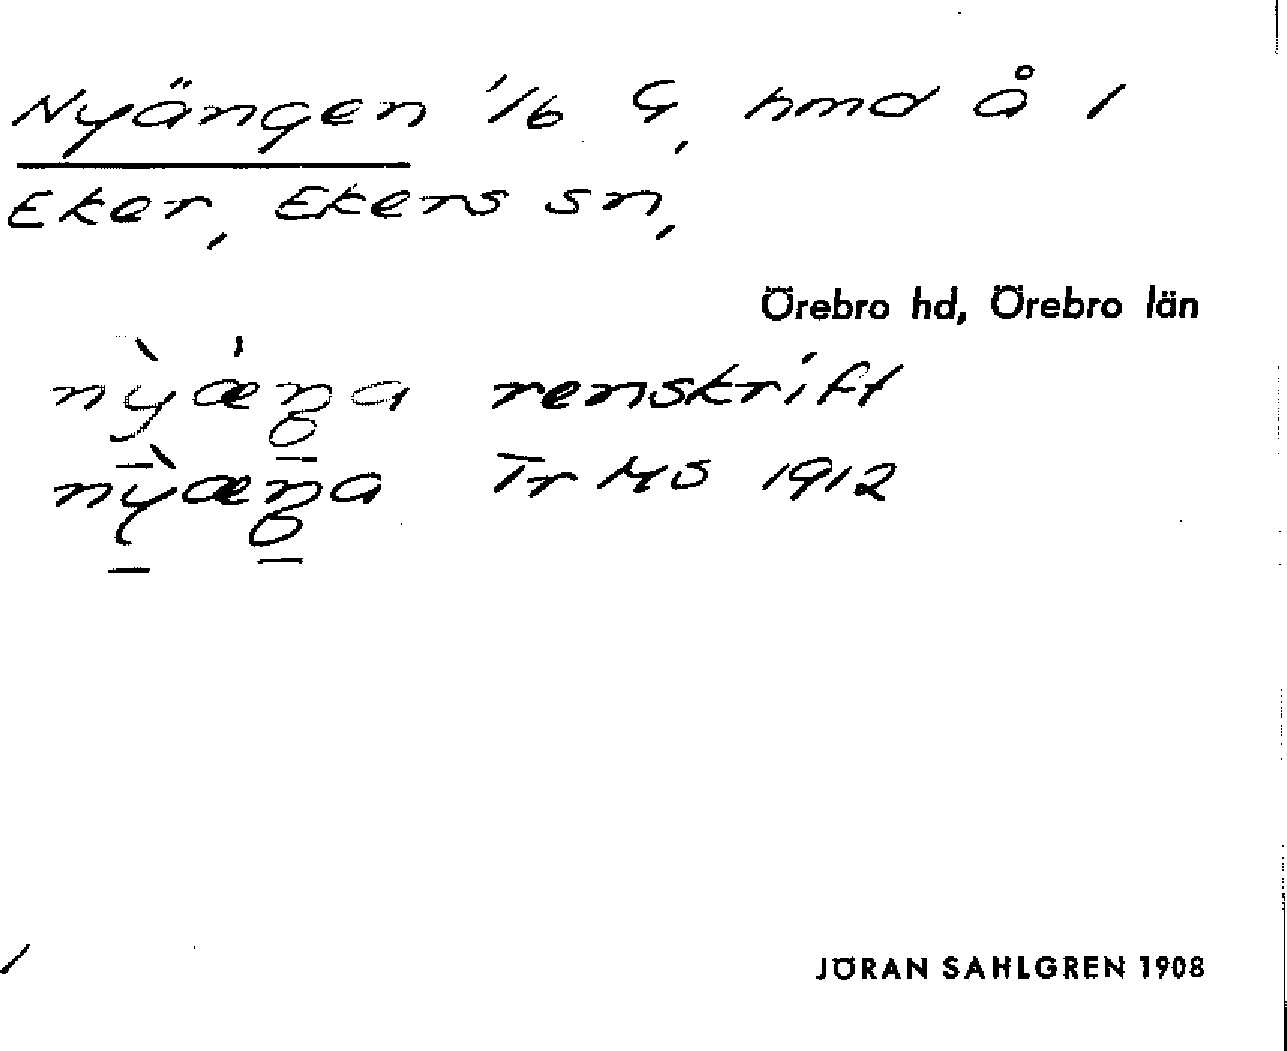 Nyängen 1/6 G, hmd å 1
Eker, Ekers sn,
Örebro hd, Örebro län
nỳæ̍ŋa renskrift
nỳæŋa Tr MS 1912
JÖRAN SAHLGREN 1908